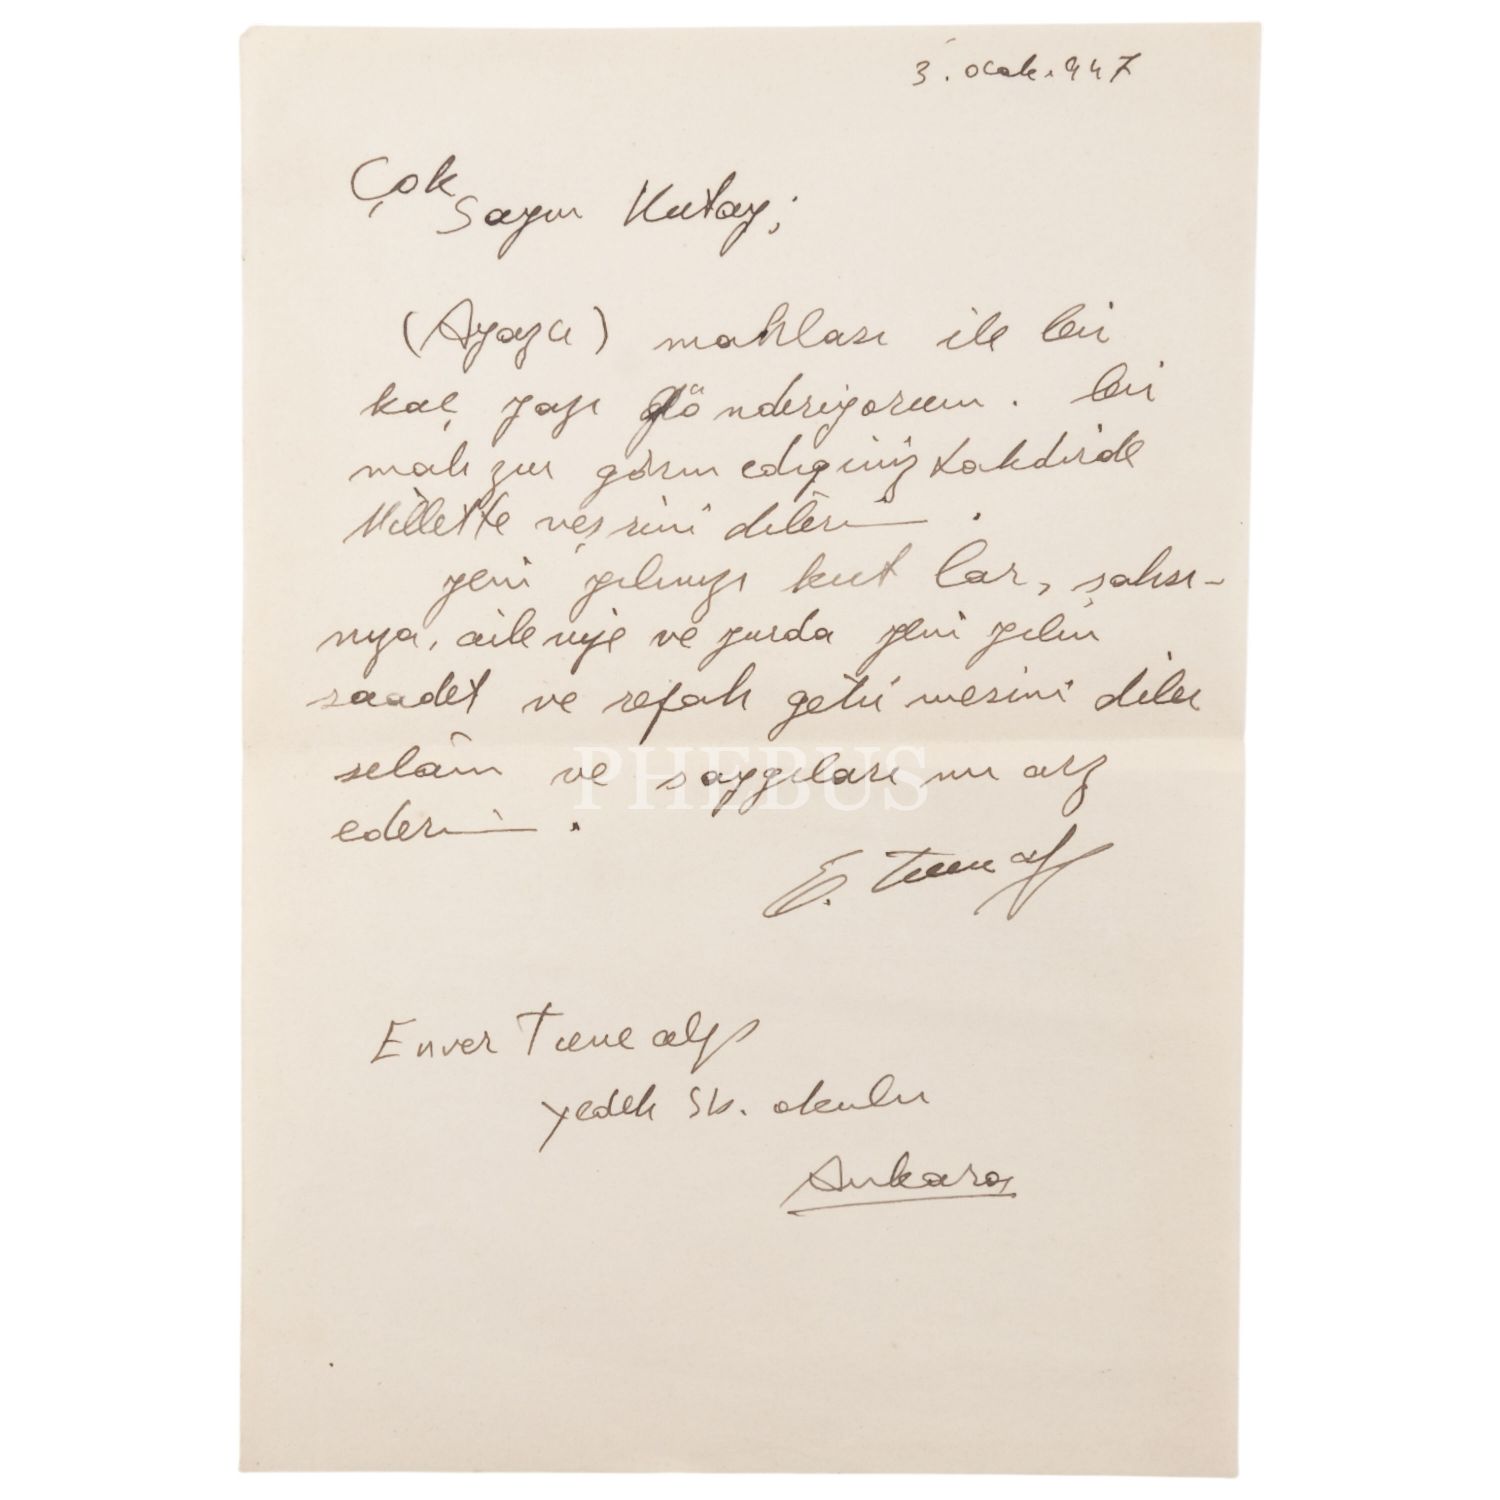 3. ocak. 947
Çok
Sayın Kutay;
(Ayazcı) mahlası ile bir
kaç yazı gönderiyorum. bir
mahzur görmediğiniz takdirde
Millette neşrini dilerim.
yeni yılınızı kutlar, şahsı-
nıza, ailenize ve yurda yeni yılın
saadet ve refah getirmesini diler
selâm ve saygılarımı arz
ederim.
PHEBUS
E. Tuncalp
Enver Tuncalp
Yedek Sb. okulu
Ankara